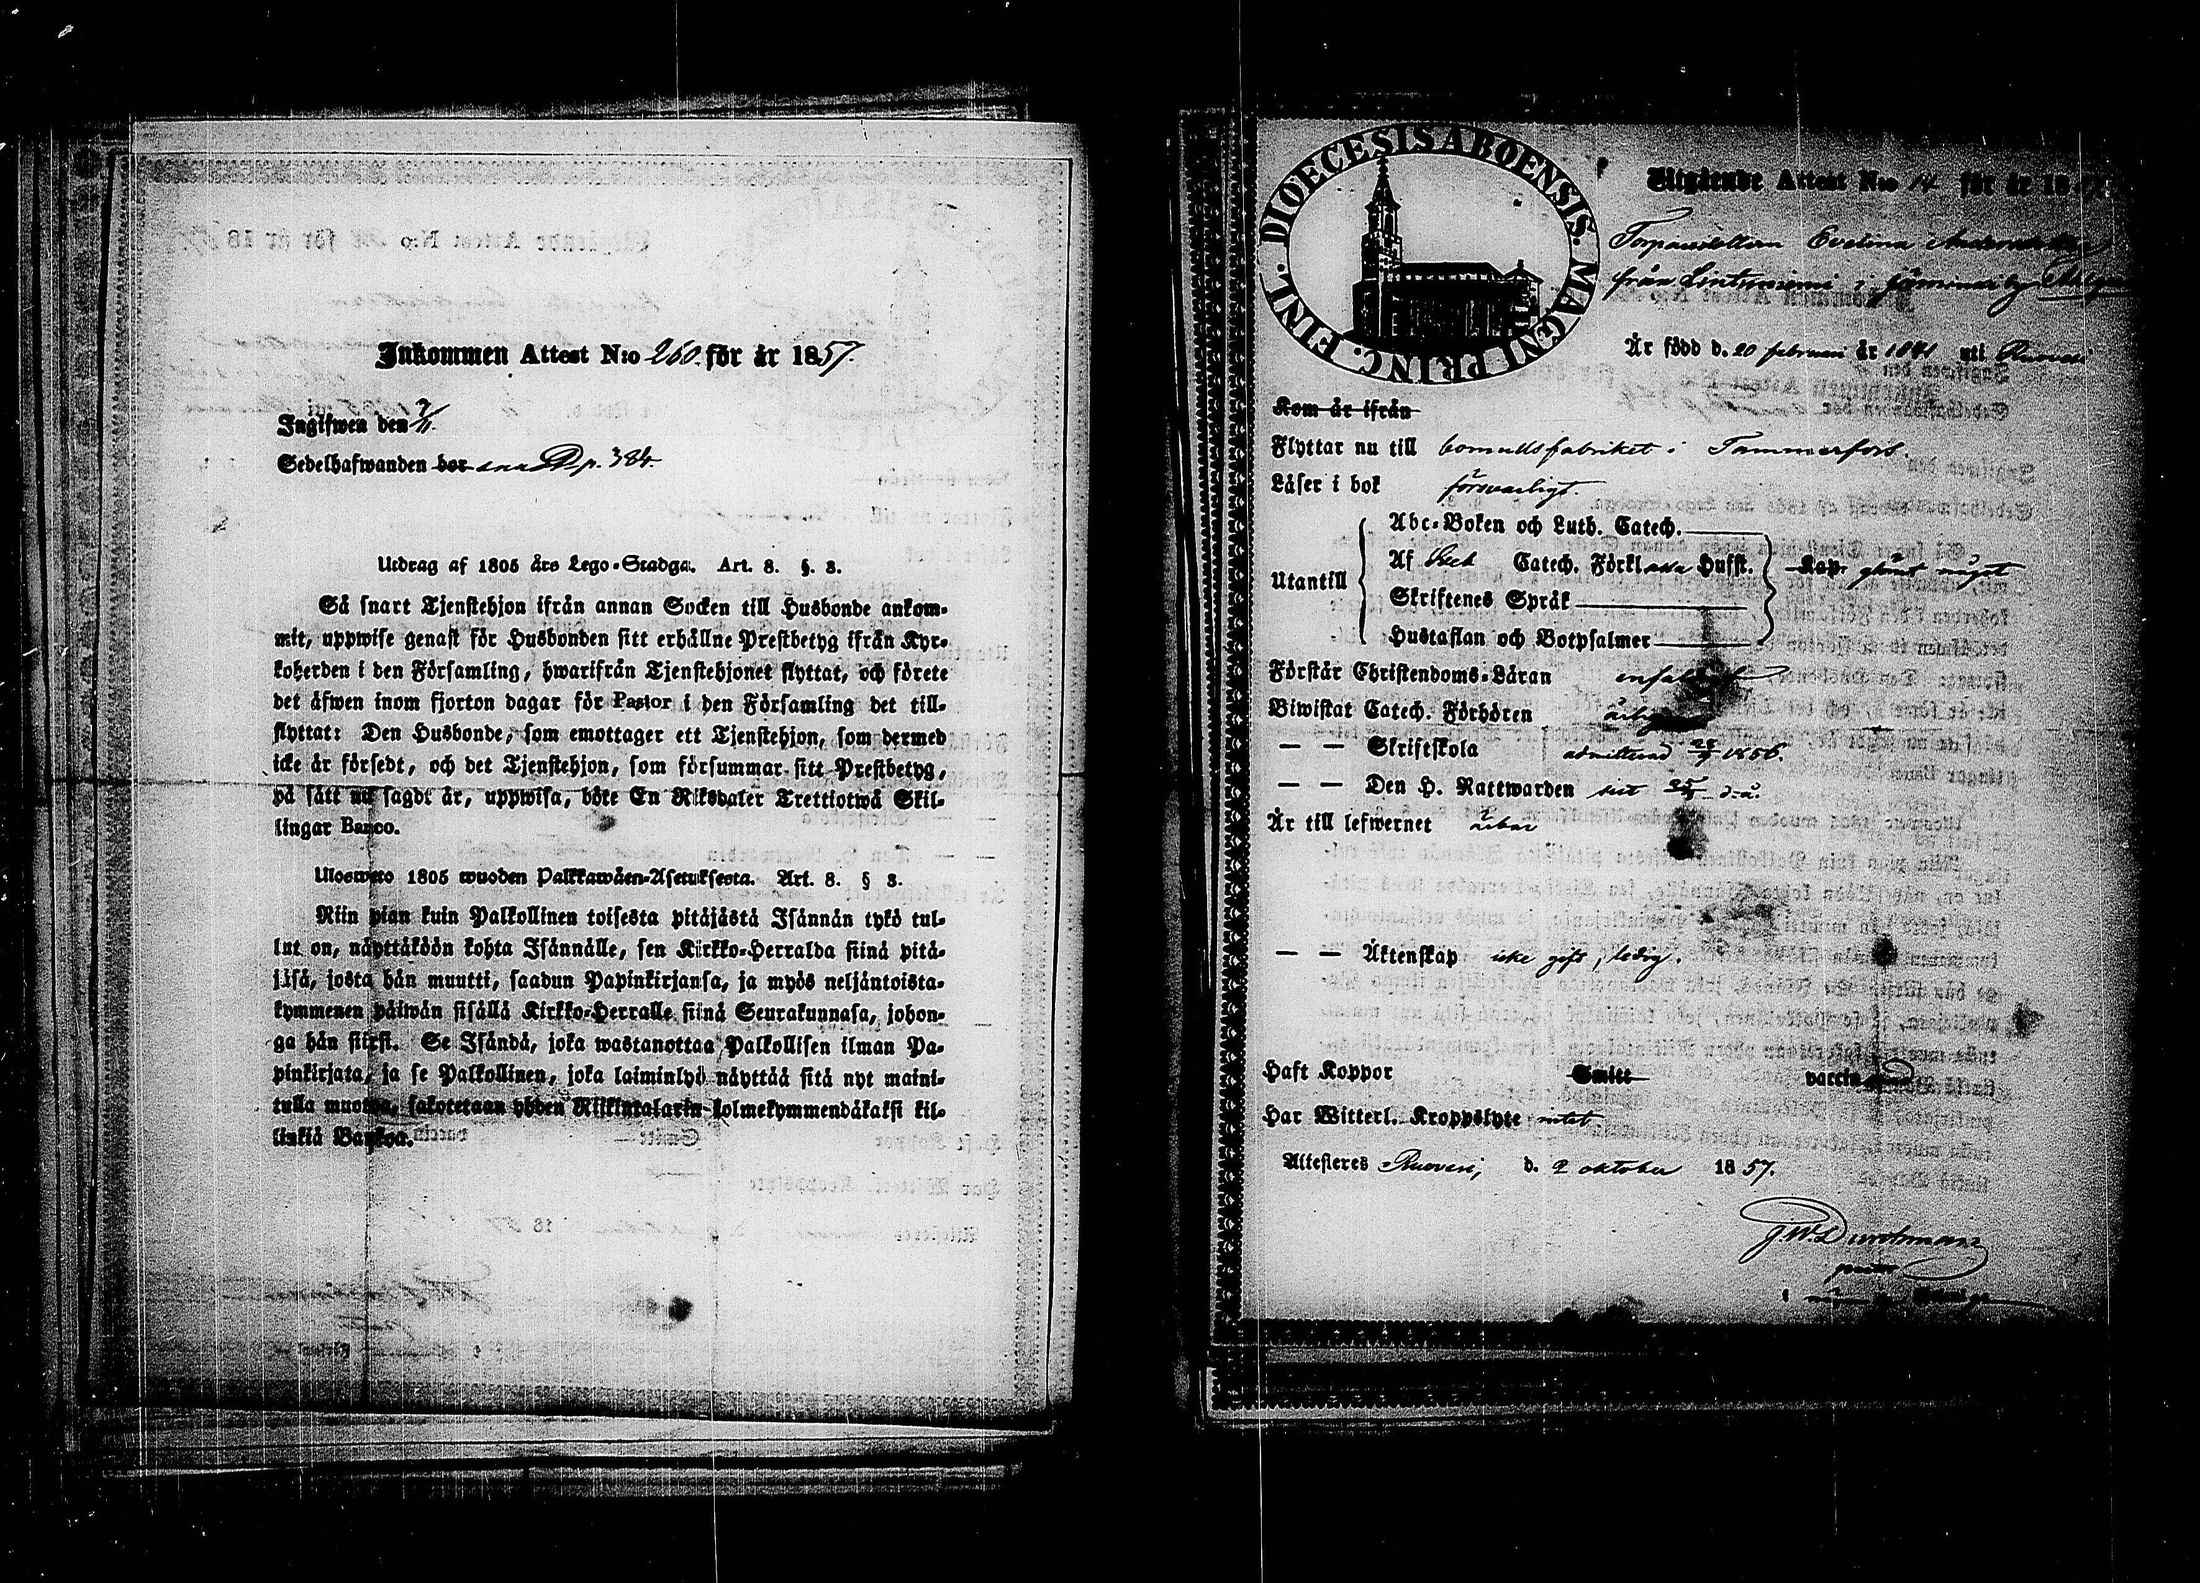 Inkommen Attest N:o 260 för år 1857.
Ingifwen den 7/11.
Sedelhafwanden bor p. 384.
Utdrag af 1805 års Lego-Stadga. Art. 8. §. 3.
Så snart Tjenstehjon ifrån annan Socken till Husbonde ankom-
mit, uppwise genast för Husbonden sitt erhållne Prestbetyg ifrån Kyr-
koherden i den Församling, hwarifrån Tjenstehjonet flyttat, och förete
det äfwen inom fjorton dagar för Pastor i den Församling det till-
flyttat: Den Husbonde, som emottager ett Tjenstehjon, som dermed
icke är försedt, och det Tjenstehjon, som försummar sitt Prestbetyg,
på sätt nu sagdt är, uppwisa, böte En Riksdaler Trettiotwå Skil-
lingar Banco.
Ulosweto 1805 wuoden Palkkawäen-Asetuksesta. Art. 8. § 3.
Niin pian kuin Palkollinen toisesta pitäjästä Isännän tykö tul-
lut on, näyttäköön kohta Isännälle, sen Kirkko-Herralda siinä pitä-
jäsä, josta hän muutti, saadun Papinkirjansa, ja myös neljäntoista-
kymmenen päiwän sisällä Kirkko-Herralle siinä Seurakunnasa, johon-
ga hän siirsi. Se Isändä, joka wastanottaa Palkollisen ilman Pa-
pinkirjata, ja se Palkollinen, joka laiminlyö näyttää sitä nyt maini-
tulla muotoa, sakotetaan yhden Riikintalarin kolmekymmendäkaksi kil-
linkiä Bankoa.
DIOECESIS ABOENSIS. MAGNI PRINC. FINL.
Utgående Attest N:o 14 för år 1857
Torparedottern Evelina
från Lintuniemi i by
Är född d. 20 februari år 1841 uti Ruovesi
Kom är ifrån
Flyttar nu till bomullsfabriket i Tammerfors.
Läser i bok försvarligt.
Utantill
Abc-Boken och Luth. Catech.
Af Catech. Förkl Husst. Kap. glömt något
Skriftenes Språk
Hustaflan och Botpsalmer
Förstår Christendoms-Läran enfaldigt
Biwistat Catech. Förhören årligen
— — Skriftskola admitterad 1856.
— — Den H. Nattwarden sist d. å.
Är till lefwernet ärbar
— — Äktenskap icke gift, ledig.
Haft Koppor Smitt vaccin
Har Witterl. Kroppslyte intet.
Attesteres Ruovesi, d. 2 oktober 1857.
J.W. Durchman
pastor